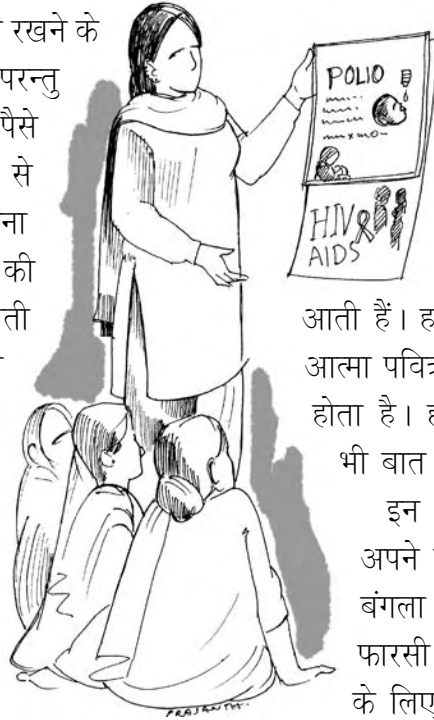 रखने के
परन्तु
पैसे
से
ना
की
ती
POLIO
HIV
AIDS
आती हैं। ह
आत्मा पवित्र
होता है। ह
भी बात
इन
अपने
बंगला
फारसी
के लिए
PRASANTH.